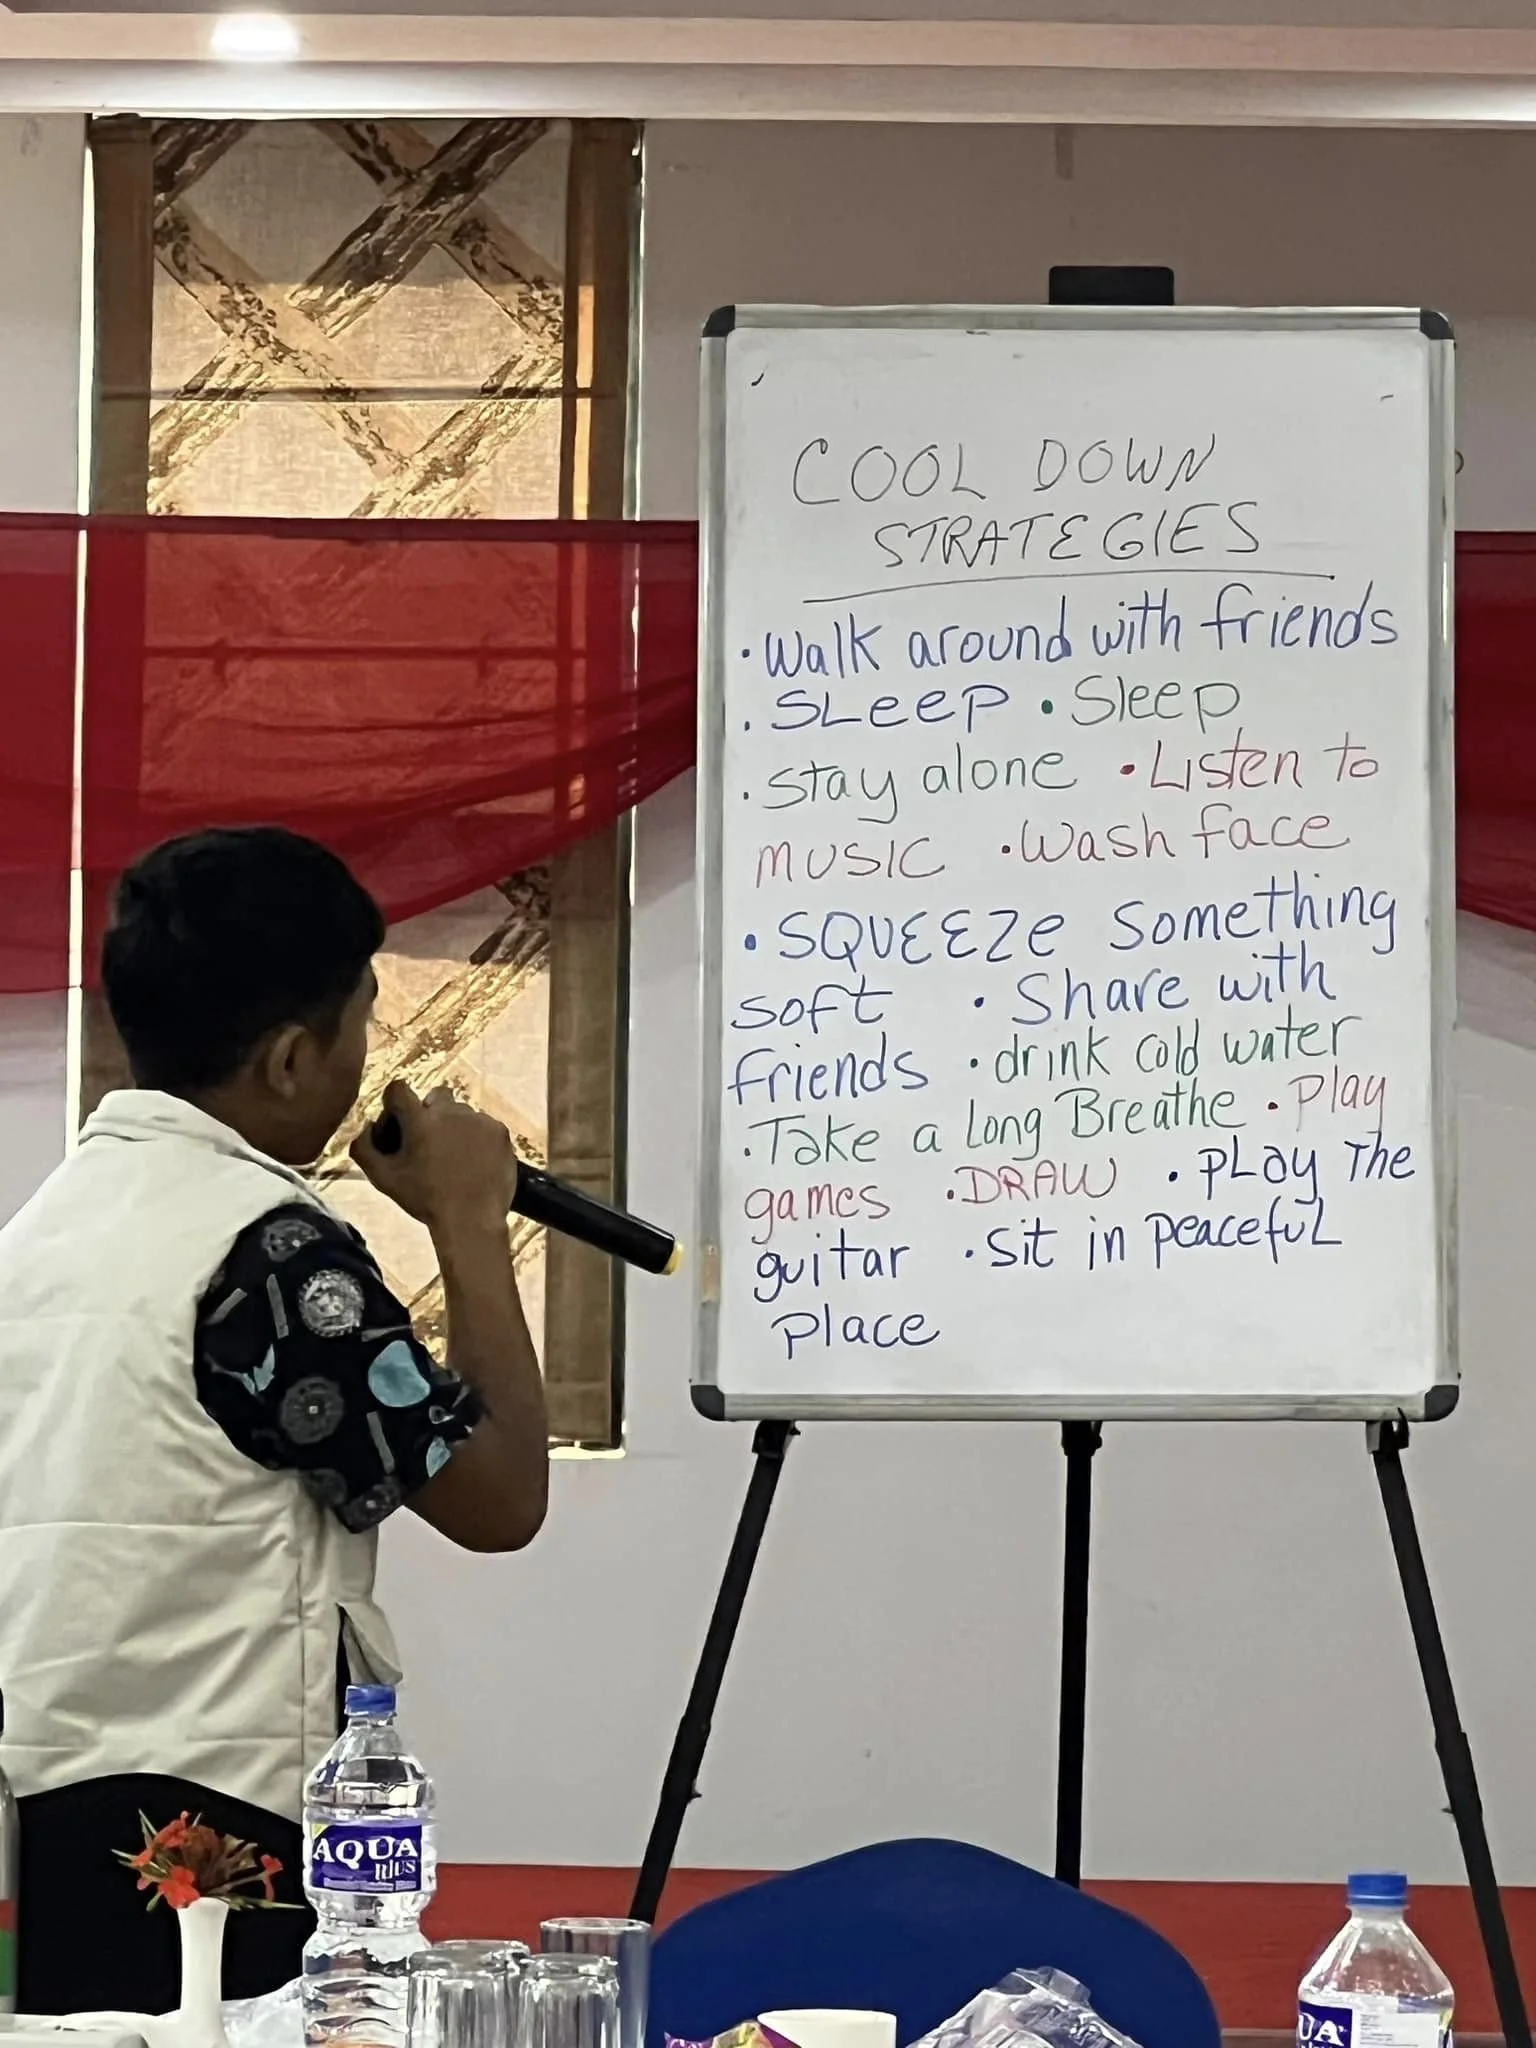 COOL DOWN
STRATEGIES
• Walk around with friends
• SLeeP • Sleep
• Stay alone • Listen to
music • Wash face
• SQUEEZe Something
Soft • Share with
friends • drink cold water
• Take a long Breathe • Play
games • DRAW • PLay The
guitar • Sit in PeacefuL
Place
AQUA
Plus
UA